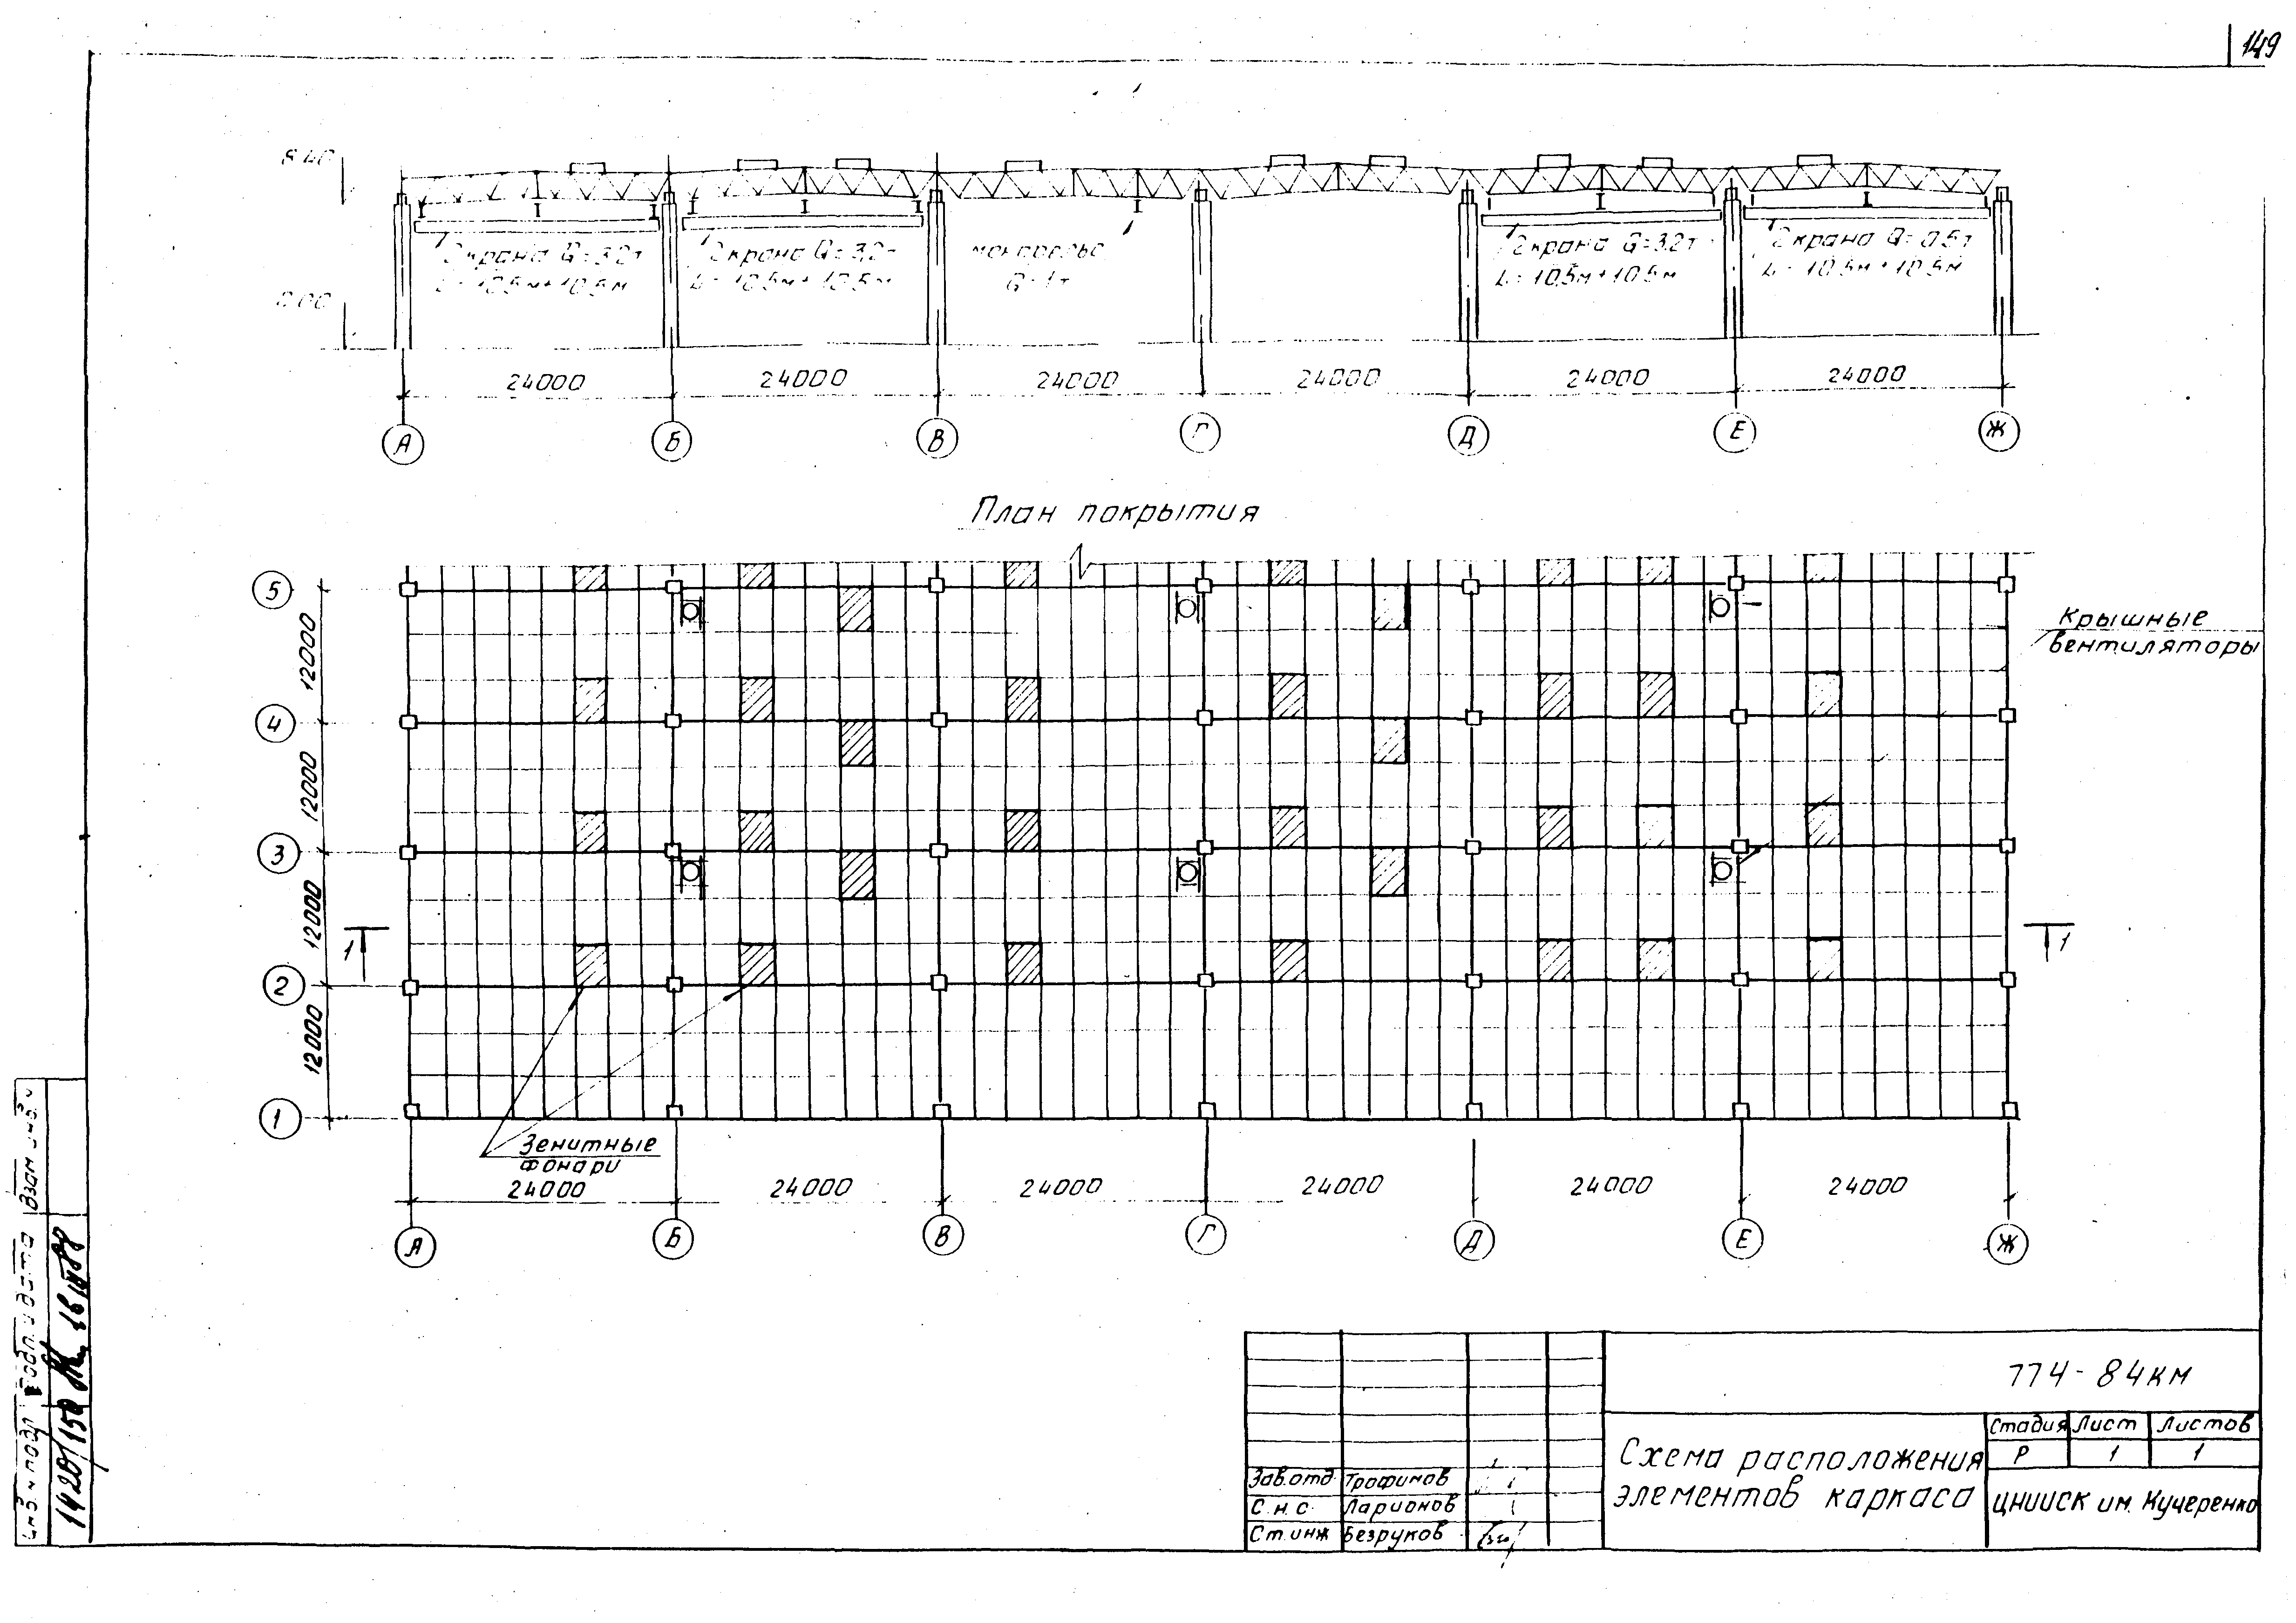 149
8.40
0.00
2 крана Q=3,2т
L=10,5м+10,5м
2 крана Q=3,2т
L=10,5м+10,5м
монорельс
Q=1т
2 крана Q=3,2т
L=10,5м+10,5м
2 крана Q=0,5т
L=10,5м+10,5м
24000 24000 24000 24000 24000 24000
А Б В Г Д Е Ж
План покрытия
5
4
3
2
1
12000
12000
12000
12000
1
1
Крышные
вентиляторы
Зенитные
фонари
24000 24000 24000 24000 24000 24000
А Б В Г Д Е Ж
774-84км
Схема расположения
элементов каркаса
Стадия Лист Листов
Р 1 1
ЦНИИСК им. Кучеренко
Зав.отд. Трофимов
С.н.с. Ларионов
Ст.инж Безруков
Инв. № подл.
Подп. и дата
Взам. инв. №
1420/150